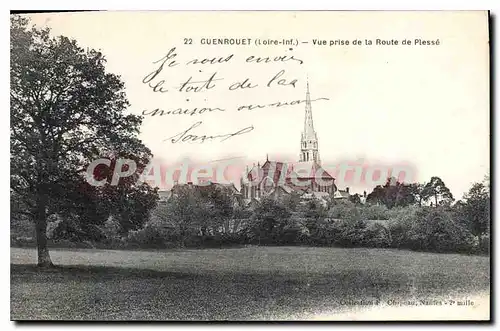 22 GUENROUET (Loire-Inf.) — Vue prise de la Route de Plessé
Je vous envoie
le toit de la
maison ou nous
sommes
CPArama.com
Collection F. Chapeau, Nantes - 7e mille